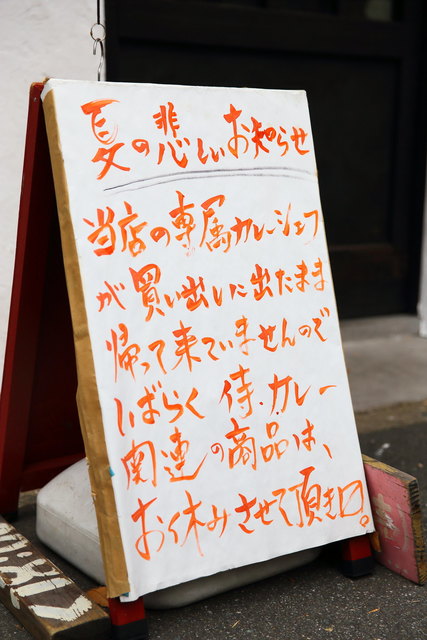 夏の悲しいお知らせ
当店の専属カレーシェフ
が買い出しに出たまま
帰って来ていませんので
しばらく侍.カレー
関連の商品は、
お休みさせて頂き〼。